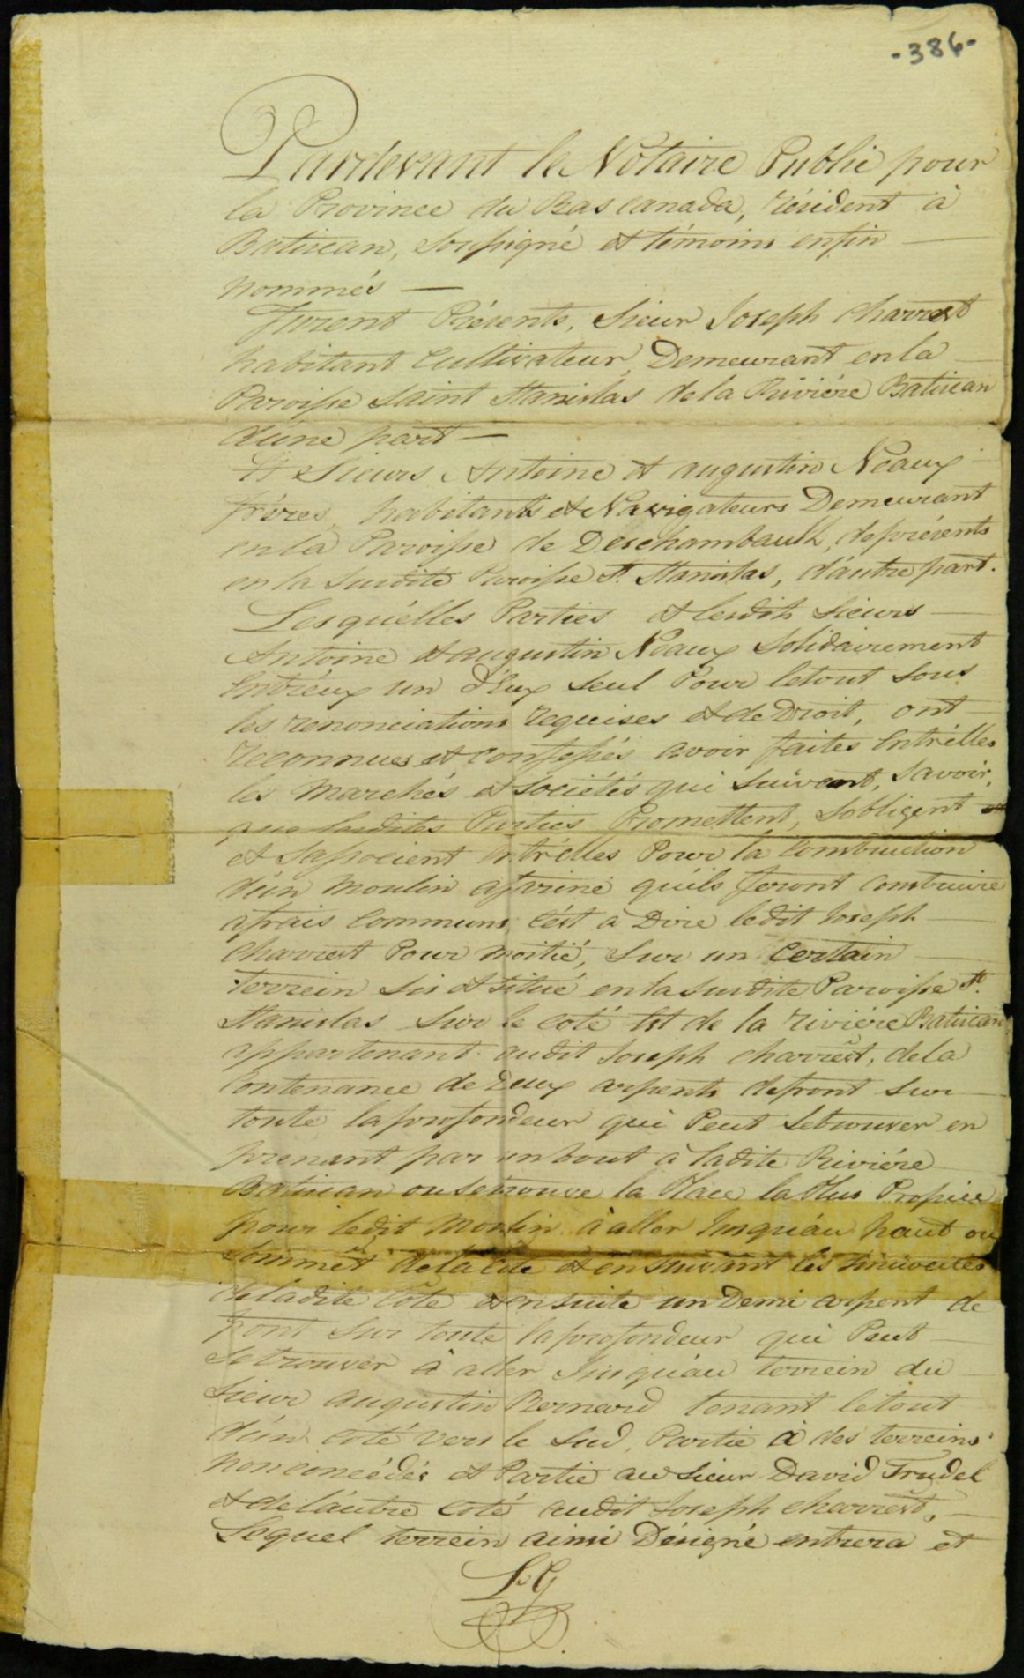 -386-
Pardevant le Notaire Public pour
la Province du Bas Canada, résident à
Batiscan, soussigné et témoins enfin
nommés —
Furent Présents, Sieur Joseph Charrest
habitant Cultivateur, Demeurant en la
Paroisse Saint Stanislas de la Riviére Batiscan
d'úne part —
Et Sieurs Antoine et augustin Neaux
fréres, habitants et Navigateurs Demeurant
en la Paroisse de Deschambault, de présents
en la susdite Paroisse St. Stanislas, d'autre part.
Lesquélles Parties et lesdits Sieurs
Antoine et augustin Neaux Solidairement
Entréux un d'Eux seul Pour letout sous
les renonciations requises et de Droit, ont
reconnues et confessés avoir faites Entrélles
les Marchés et Sociétés qui suivent, Savoir,
que lesdites Parties Promettent, sobligent
et Sassocient Entrelles Pour la Construction
d'un Moulin afarine quils feront Construire
afrais Communs, cést à Dire ledit Joseph
Charrest Pour moitié, Sur un Certain
terrein Sis et situé en la susdite Paroisse St.
Stanislas Sur le coté Est de la riviére Batiscan
appartenant audit Joseph Charrest, de la
Contenance de Deux arpents defront sur
toute laprofondeur qui Peut Setrouver en
prenant par un bout à ladite Riviére
Batiscan ousetrouve la Place la Plus Propice
pour ledit Moulin à aller Jusquáu haut ou
Sommêt dela Côte et en suivant les sinuosités
deladite Côte et ensuite un Demi arpent de
front Sur toute laprofondeur qui Peut
Setrouver à aller Jusquáu terrein du
Sieur augustin Bernard tenant letout
d'un coté vers le Sud, Partie à des terreins
nonconcédés et Partie au Sieur David Trudel
et de láutre coté audit Joseph Charrest,
Lequel terrein ainsi Désigné entrera et
L.G